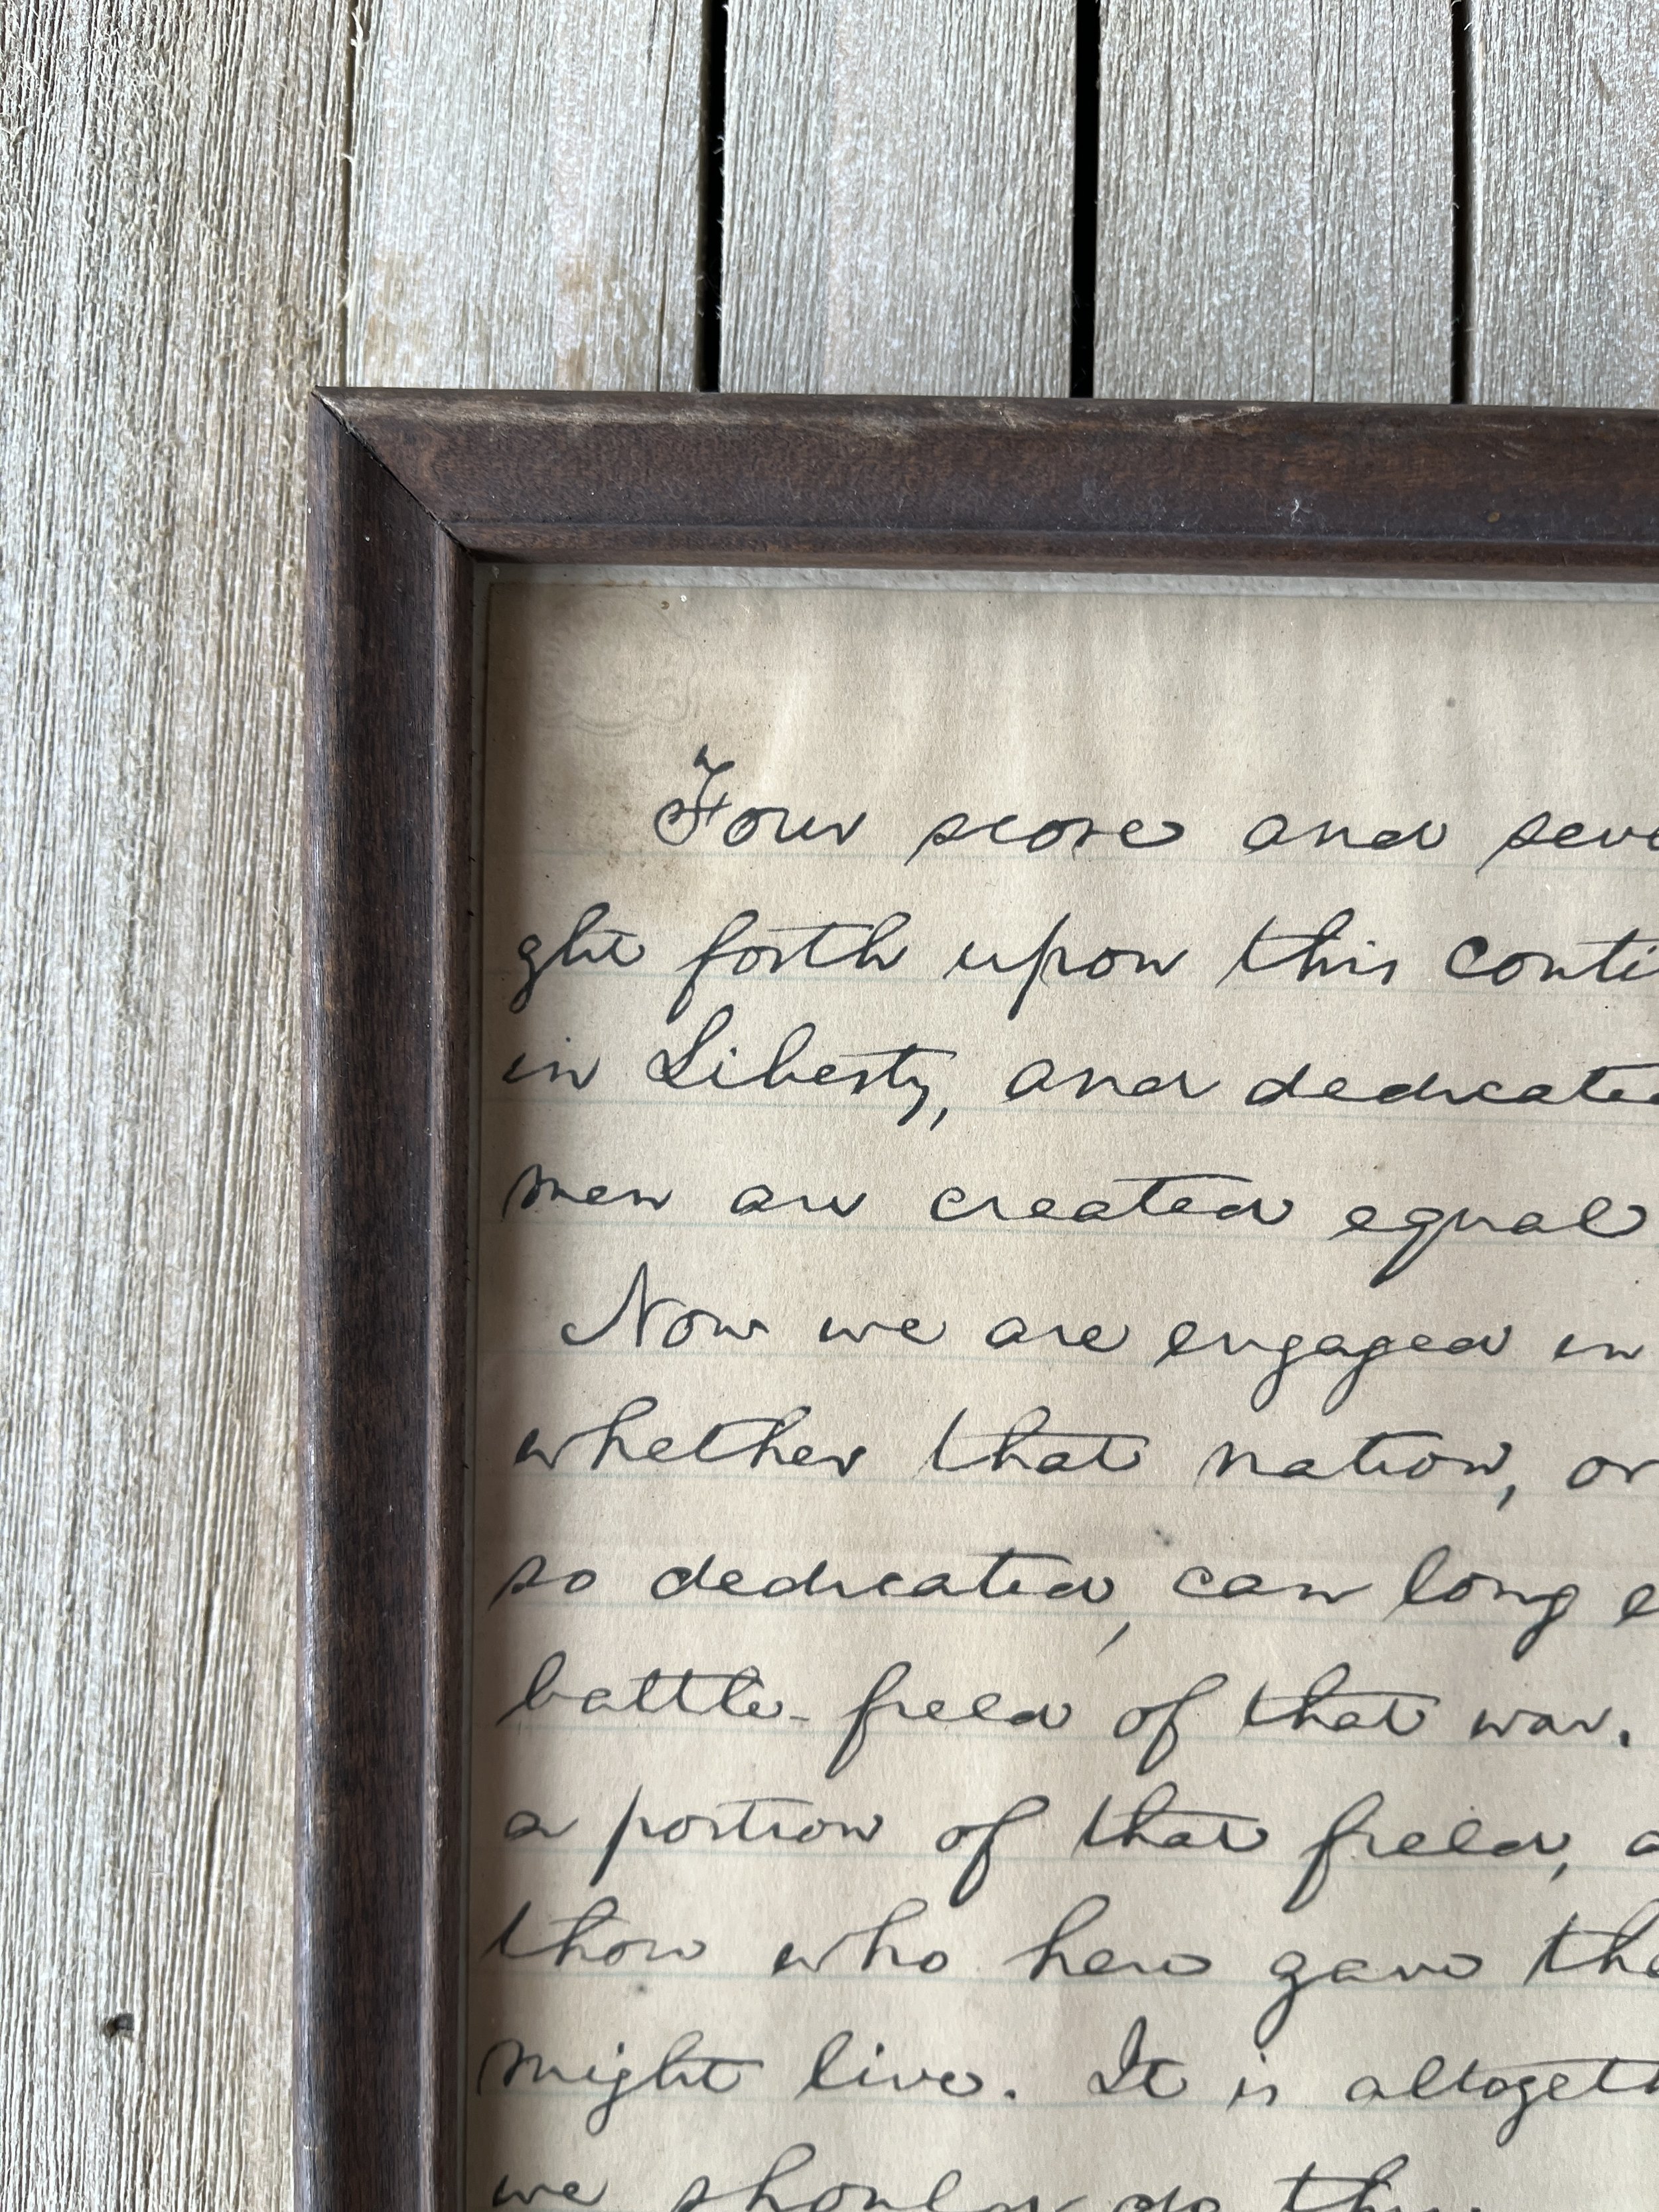 Four score and seve
ght forth upon this conti
in Liberty, and dedicated
men are created equal
Now we are engaged in
whether that nation, or
so dedicated, can long e
battle-field of that war.
a portion of that field, a
those who here gave the
might live. It is altogeth
we should do this